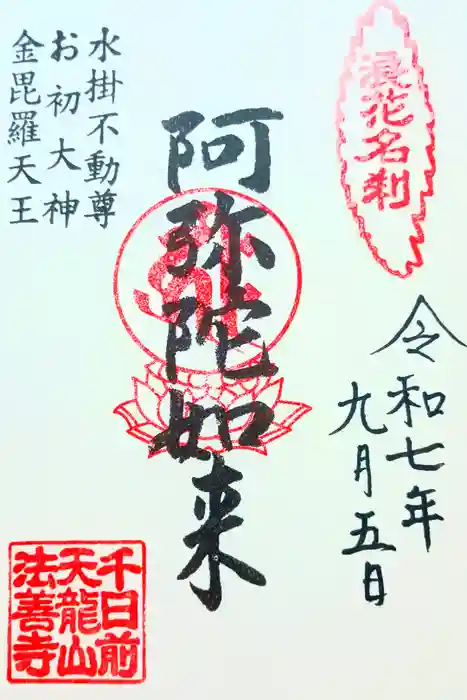 浪花名刹
令和七年
九月五日
阿弥陀如来
水掛不動尊
お初大神
金毘羅天王
千日前
天龍山
法善寺